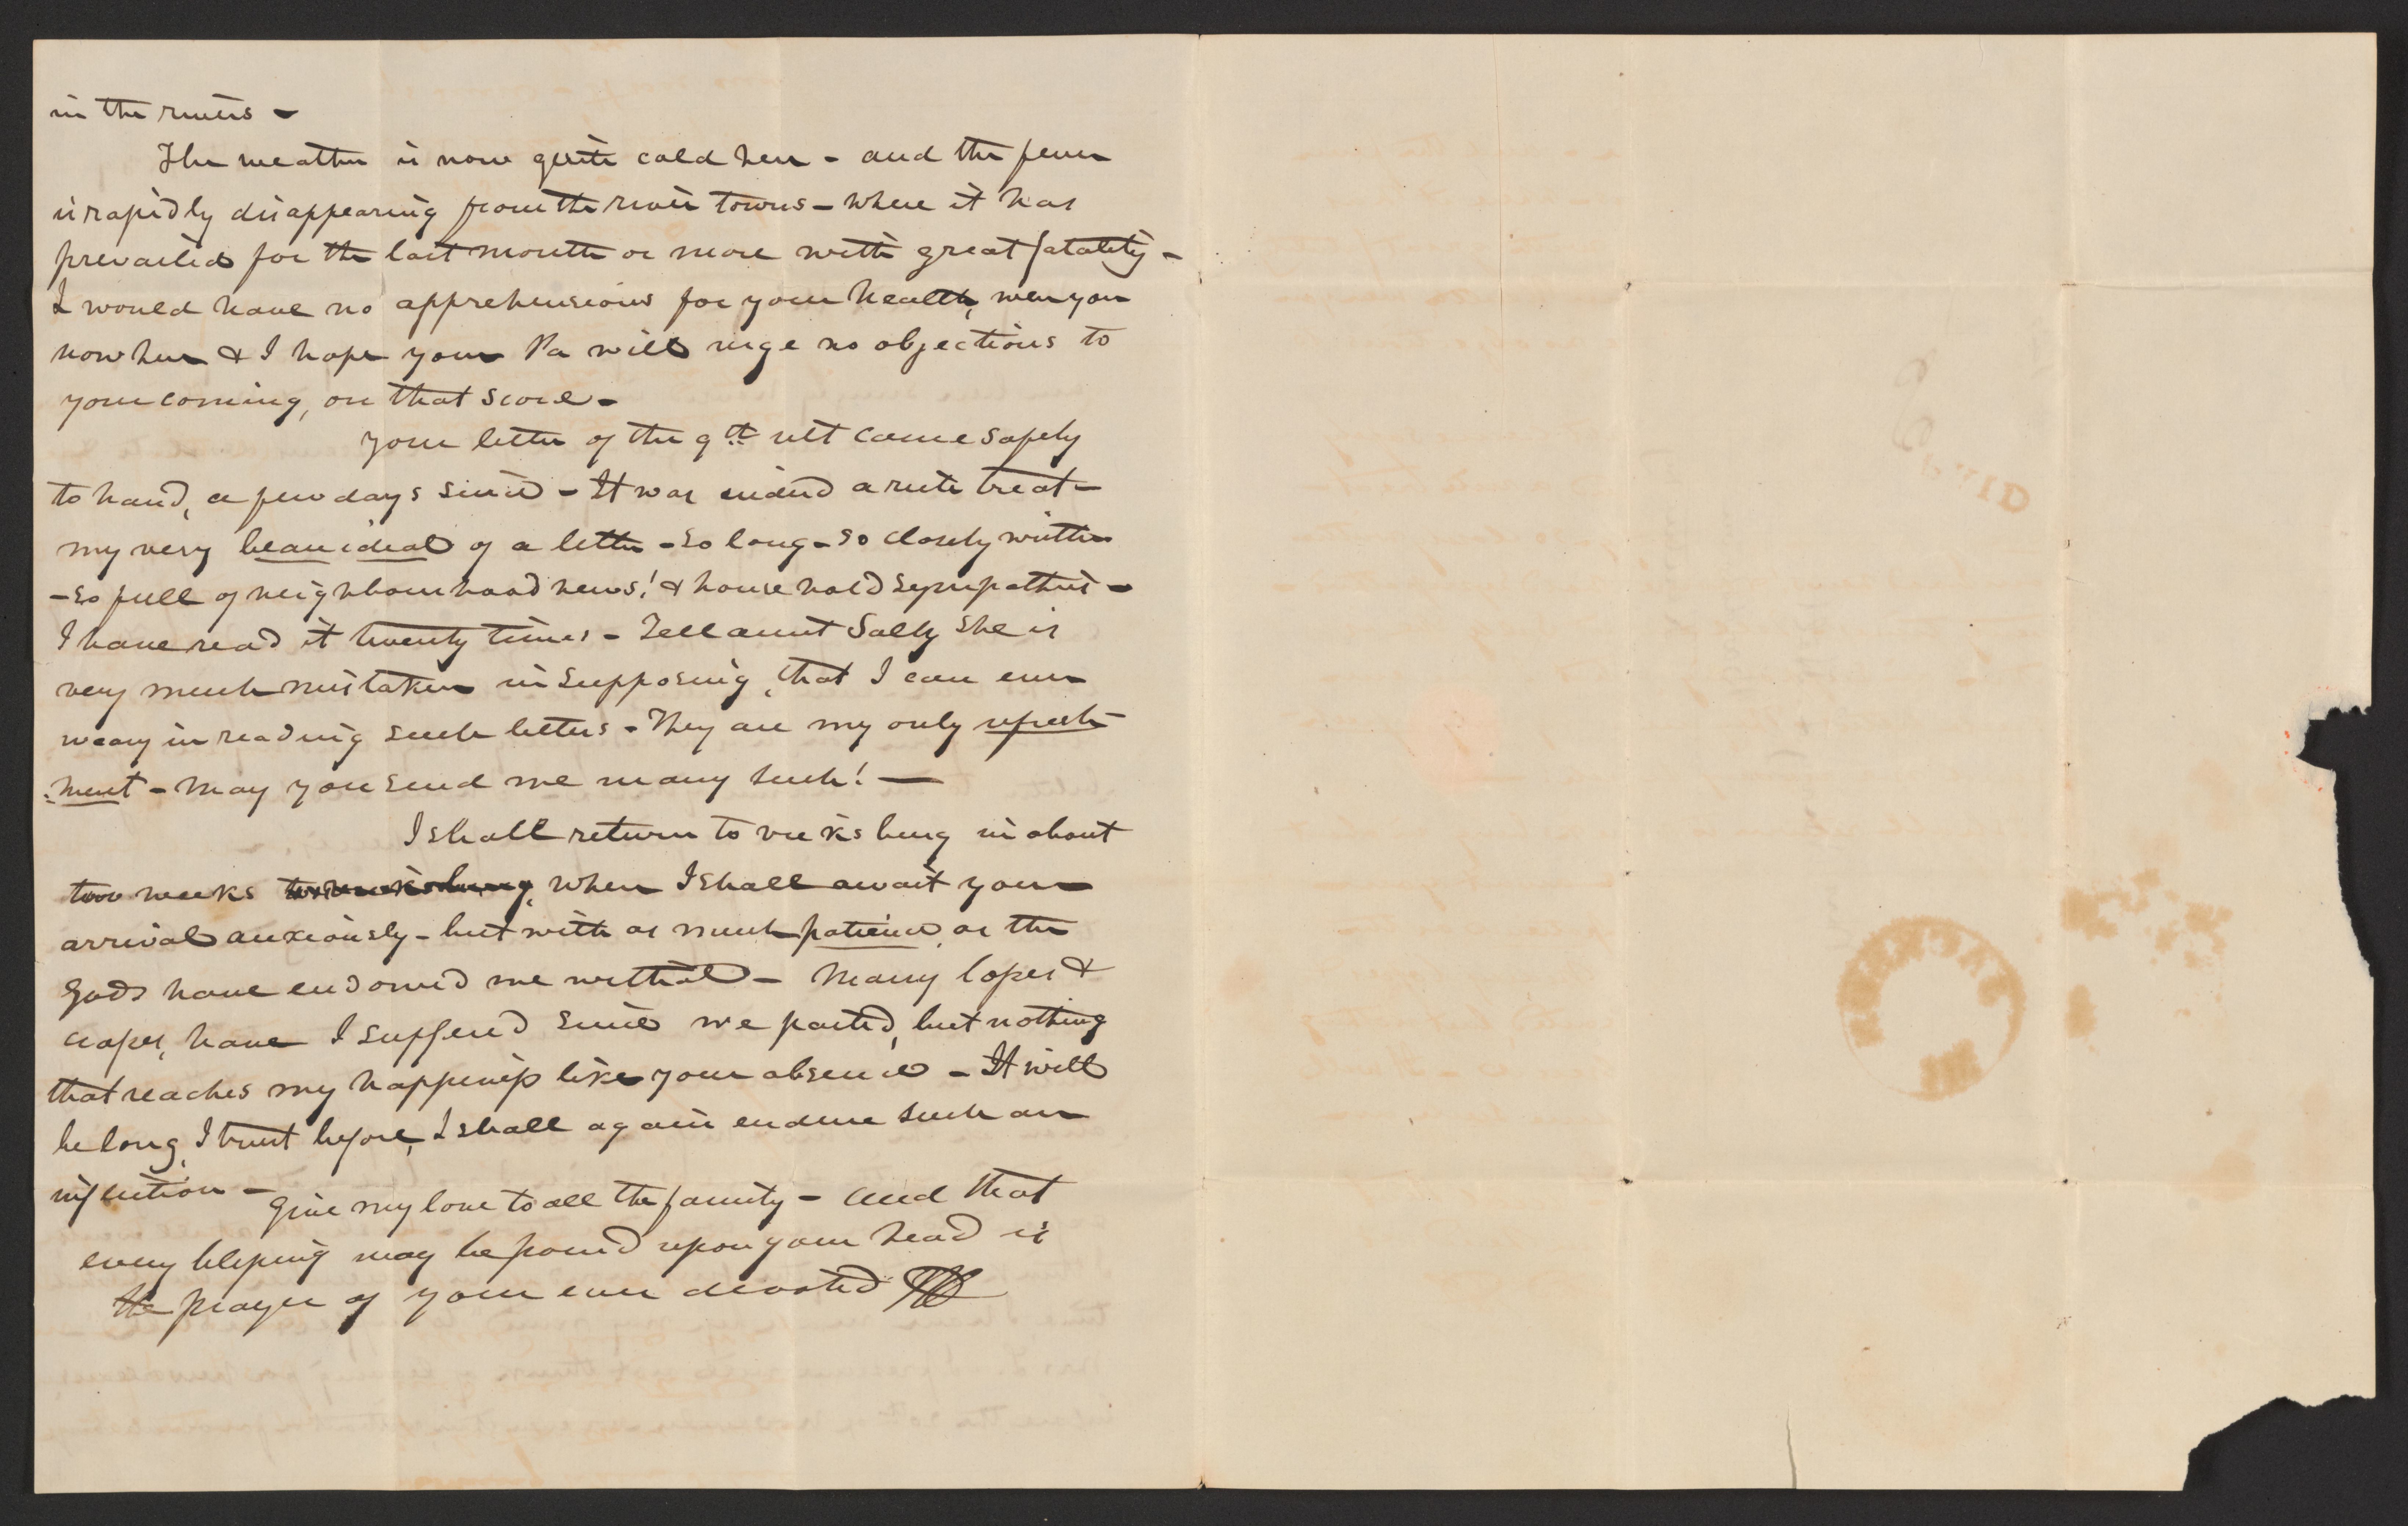 in the rivers -
The weather is now quite cold here - and the fever
is rapidly disappearing from the river towns - where it has
prevailed for the last month or more with great fatality -
I would have no apprehensions for your health, were you
now here & I hope your Pa will urge no objections to
your coming, on that score -
your letter of the 9th ult came safely
to hand, a few days since - It was indeed a rich treat -
my very beau ideal of a letter - so long - so closely written
- so full of neighbourhood news! & household sympathies -
I have read it twenty times - Tell aunt Sally she is
very much mistaken in supposing, that I can ever
weary in reading such letters - They are my only refresh-
:ment - may you send me many such! -
I shall return to vicksburg in about
two weeks to vicksburg, when I shall await your
arrival anxiously - but with as much patience, as the
Gods have endowed me withal - Many losses &
crosses, have I suffered since we parted, but nothing
that reaches my happiness like your absence - It will
be long, I trust before, I shall again endure such an
infliction - Give my love to all the family - and that
every blessing may be poured upon your head is
the prayer of your ever devoted